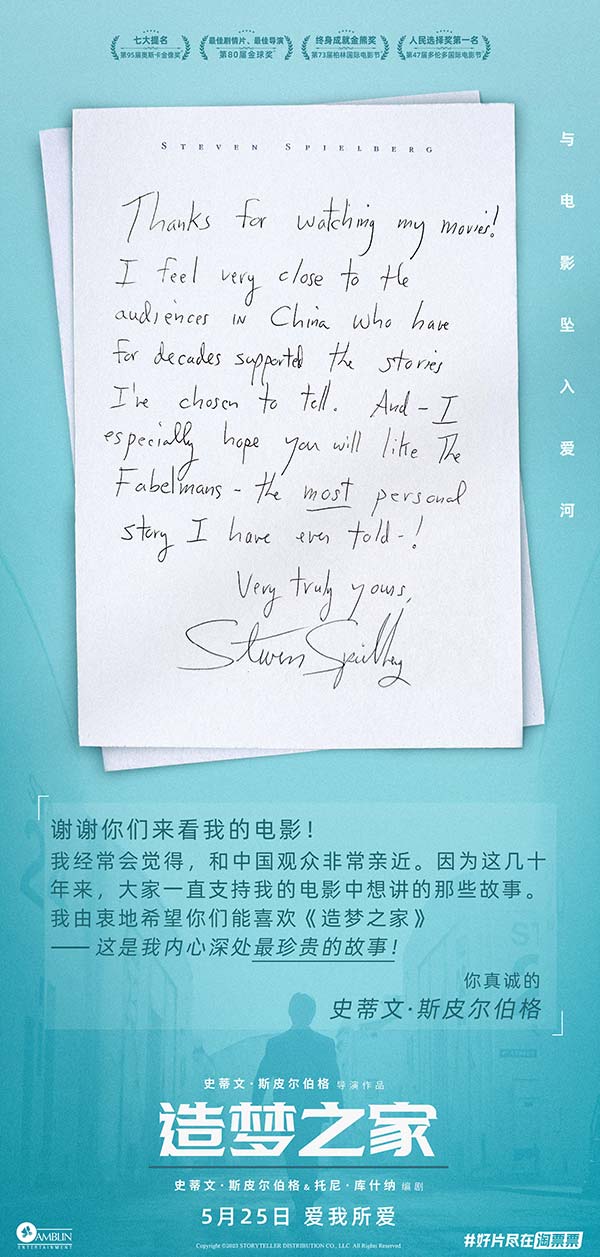 七大提名
第95届奥斯卡金像奖
最佳剧情片、最佳导演
第80届金球奖
终身成就金熊奖
第73届柏林国际电影节
人民选择奖第一名
第47届多伦多国际电影节
STEVEN SPIELBERG
Thanks for watching my movies!
I feel very close to the
audiences in China who have
for decades supported the stories
I've chosen to tell. And - I
especially hope you will like The
Fabelmans - the most personal
story I have ever told - !
Very truly yours,
Steven Spielberg
与电影坠入爱河
谢谢你们来看我的电影!
我经常会觉得，和中国观众非常亲近。因为这几十
年来，大家一直支持我的电影中想讲的那些故事。
我由衷地希望你们能喜欢《造梦之家》
—— 这是我内心深处最珍贵的故事!
你真诚的
史蒂文·斯皮尔伯格
史蒂文·斯皮尔伯格 导演作品
造梦之家
史蒂文·斯皮尔伯格 & 托尼·库什纳 编剧
5月25日 爱我所爱
AMBLIN
ENTERTAINMENT
Copyright ©2023 STORYTELLER DISTRIBUTION CO., LLC. All Rights Reserved
#好片尽在淘票票